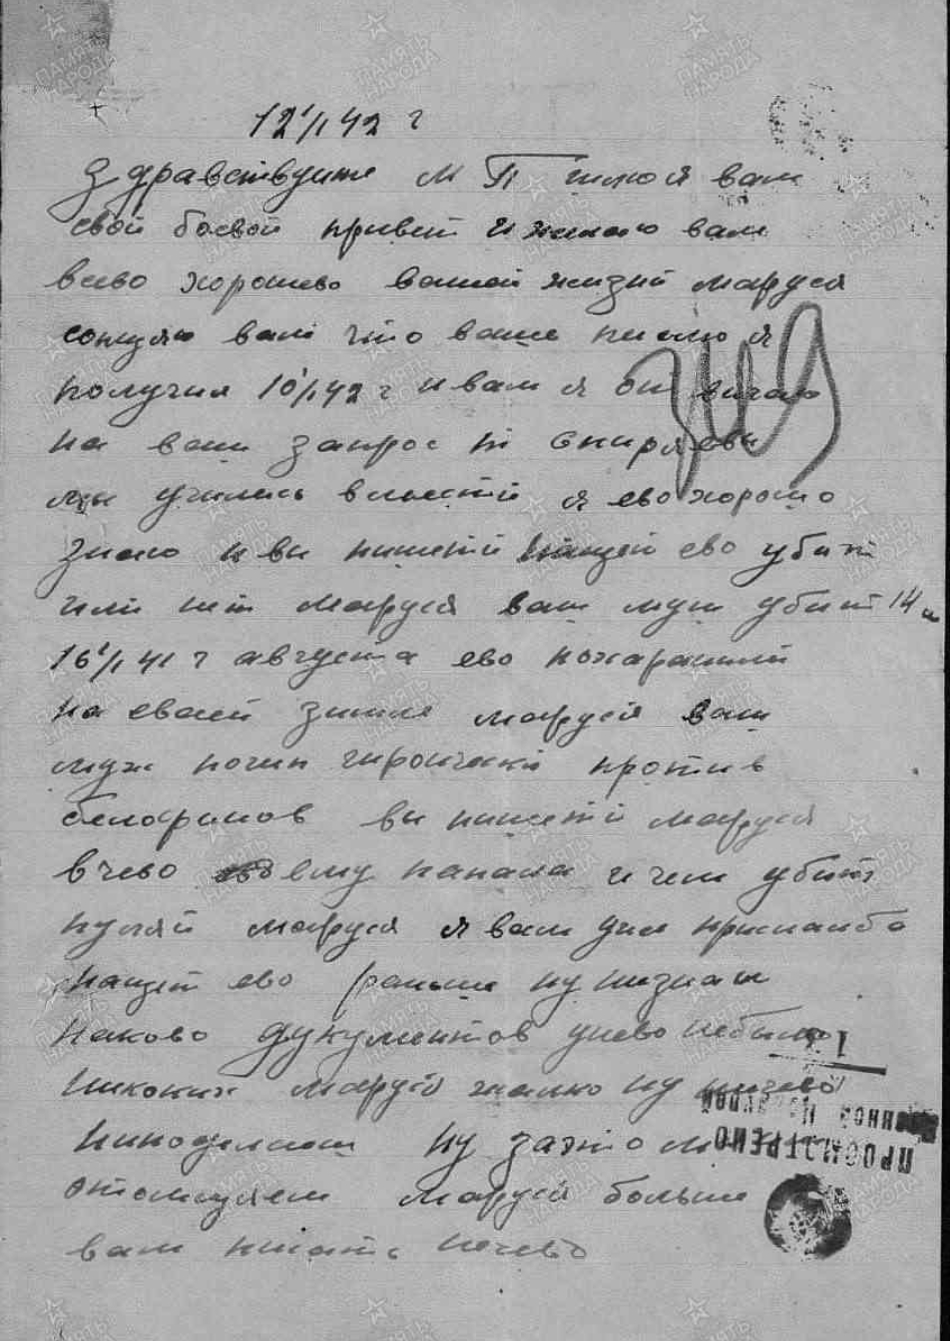 12/I 42 г
Здравствуите М П шлю я вам
свой боевой привет и желаю вам
всево хорошево вашей жизни маруся
сопщяю вам что ваше писмо я
получил 10/I 42 г и вам я от вичаю
на ваш запрос
мы учились вмести я ево хорошо
знаю и вы пишети нащёт ево убит
или нет Маруся ваш муж убит 14 и
16/ 41 г августа ево похаранили
на сваей зимле маруся ваш
муж погип гироически против
белофинов вы пишети маруся
вчево ему попала и чем убит
пуляй маруся я вам уже прислалбо
нащёт ево раньше ну низнал
каково дукументов унево небыло
никоких Маруся жалко ну ничево
ниподилаеш ну зато м
отомщяем Маруся больше
вам писать нечево
ПРОСМОТРЕНО
Военной Цензурой
ПАМЯТЬ НАРОДА